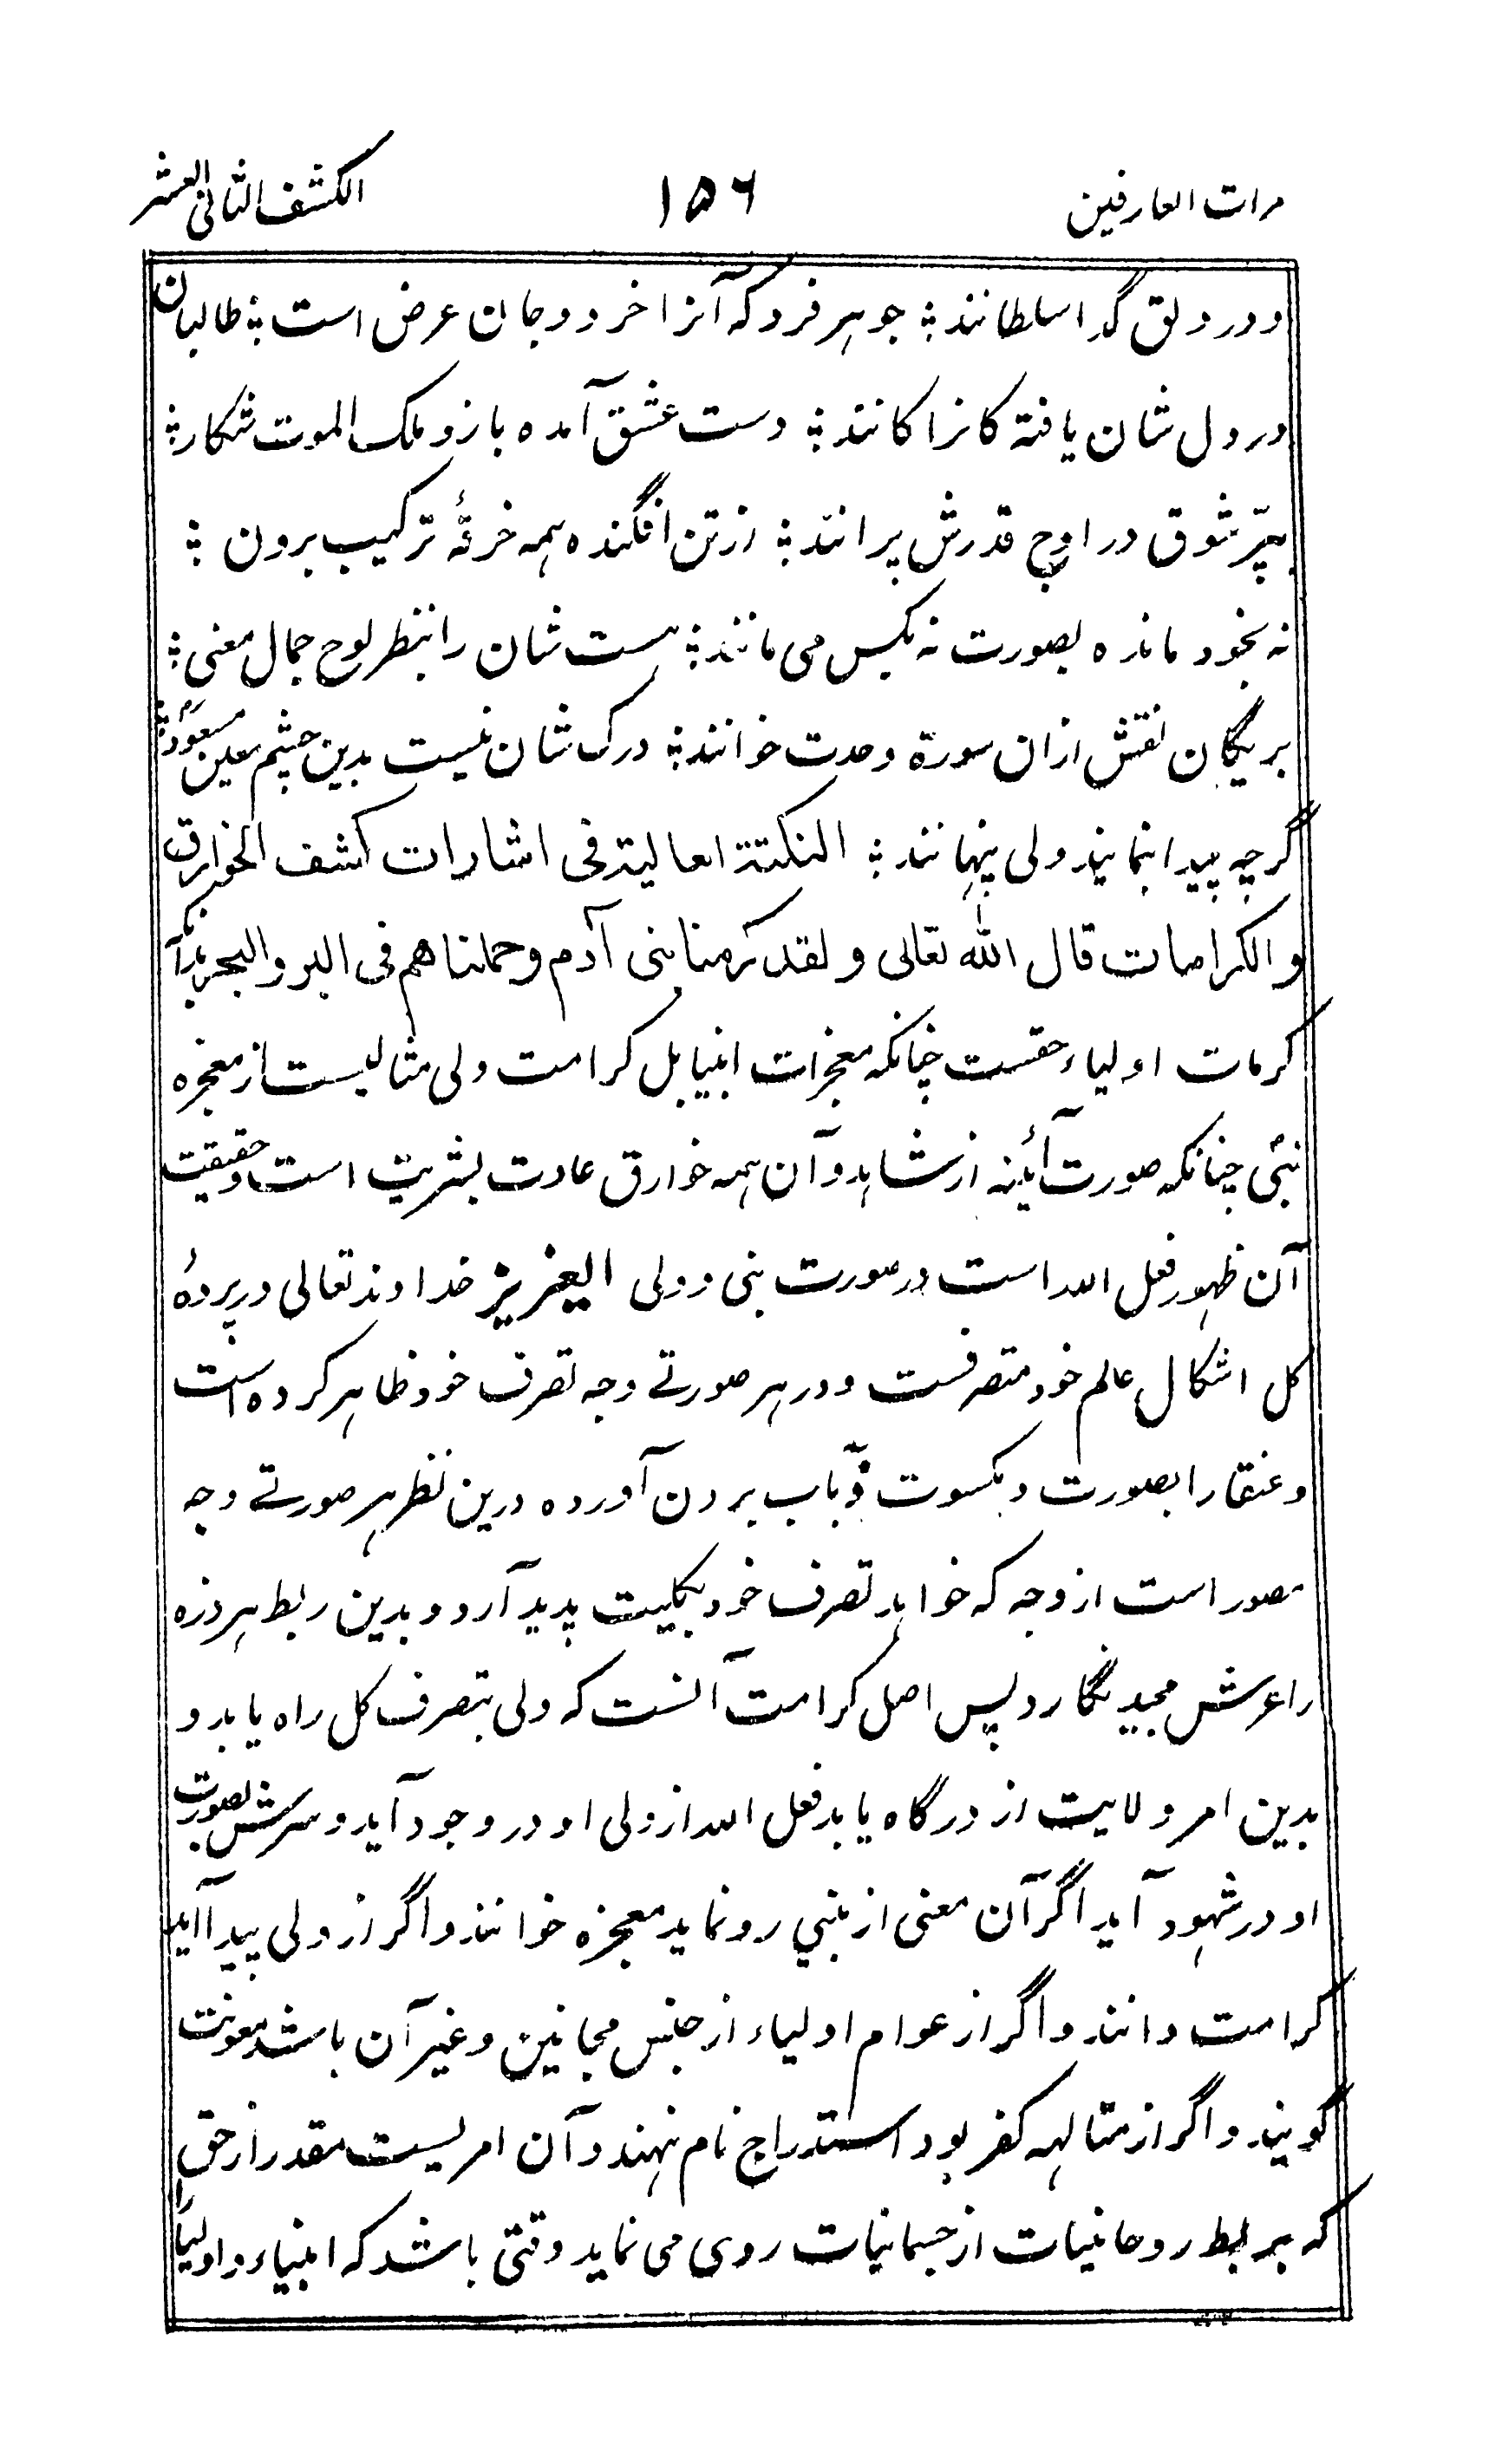 مرات العارفین ۱۵۶ الکشف الثانی العشر
و در دلق گدا سلطانند ؛ جوهر فرد که آنرا خرد و جان عرض است ؛ طالبان
در دل شان یافته کانرا کانند ؛ دست عشق آمده بازو ملک الموت شکار ؛
بپرّ شوق در اوج قدرش پرانند ؛ از تن افگنده همه خرقهٔ ترکیب برون ؛
نه بخود مانده بصورت نه بکس می مانند ؛ هست شان را بنظر لوح جمال معنی ؛
بریگان نقش ازان سورة وحدت خوانند ؛ درک شان نیست بدین چشم معین مسعود ؛
گرچه پیدا بنمایند ولی پنهانند ؛ النکتة العالیة فی اشارات کشف الخوارق
والکرامات قال الله تعالی و لقد کرمنا بنی آدم و حملناهم فی البر والبحر بدانکه
کرمات اولیاء حقست چنانکه معجزات انبیا بل کرامت ولی مثالیست از معجزه
نبی چنانکه صورت آئینه از شاهد و آن همه خوارق عادت بشریت است و حقیقت
آن ظهور فعل الله است در صورت نبی و ولی العزیز خداوند تعالی در پردهٔ
کل اشکال عالم خود متصرفست و در هر صورتے وجه تصرف خود ظاهر کرده است
و عنقا را بصورت و بکسوت ذباب برون آورده درین نظر هر صورتے وجه
مصور است از وجه که خواهد تصرف خود بکلیت پدید آرد و بدین ربط هر ذره
را عرش مجید نگارد پس اصل کرامت آنست که ولی بتصرف کل راه یابد و
بدین امر ولایت از درگاه یابد فعل الله از ولی او در وجود آید و سرش بصورت
او در شهود آید اگر آن معنی از نبی رو نماید معجزه خوانند و اگر از ولی پیدا آید
کرامت دانند و اگر از عوام اولیاء از جنس مجانین و غیر آن باشد معونت
گویند و اگر از متالهه کفر بود استدراج نام نهند و آن امریست مقدر از حق
که بر بط روحانیات از جسمانیات روی می نماید وقتی باشد که انبیاء و اولیا را